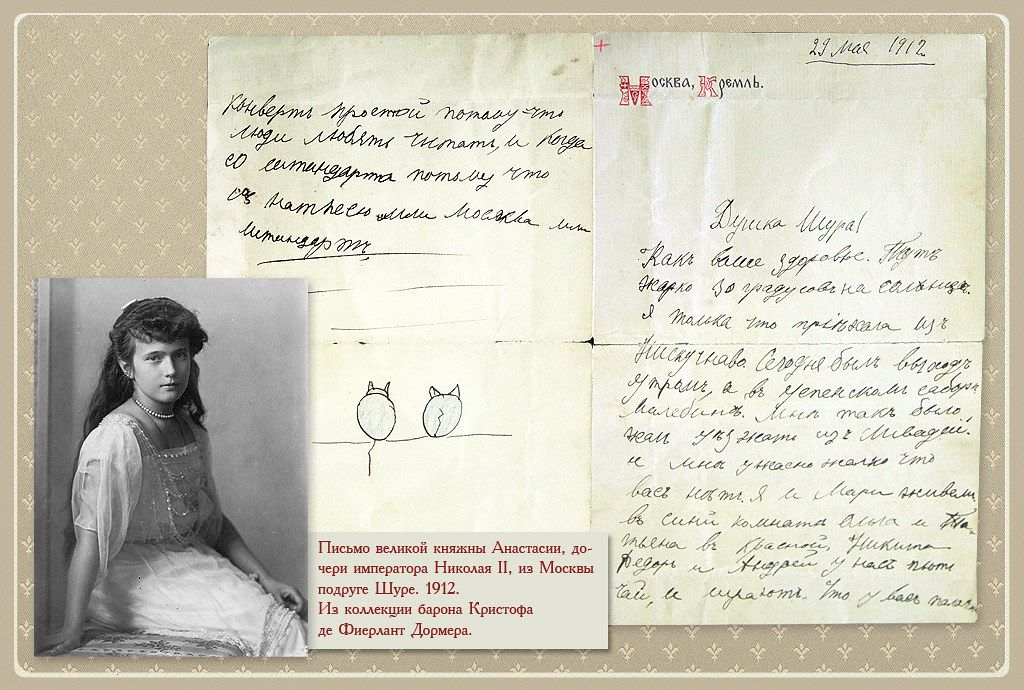 конвертъ простой потому что
люди любятъ читать, и когда
со штандарта потому что
или Москва или
штандартъ
29 мая 1912
Москва, Кремль.
Душка Шура!
Какъ ваше здоровье. Тутъ
жарко 30 градусовъ на
я только что пріѣхала изъ
Нискучнаво. Сегодня былъ выходъ
утрамъ, а въ успенскам саборѣ
Малебинъ. Мнѣ такъ было
жал уѣзжать изъ Ливадіи.
и мнѣ ужасно жалко что
васъ нѣтъ. Я и Мари живемъ
въ синй комнатѣ Ольга и Та-
тьяна въ красной, Никита
Федоръ и Андрей у насъ пьютъ
чай, и играютъ. Что у васъ
Письмо великой княжны Анастасии, до-
чери императора Николая II, из Москвы
подруге Шуре. 1912.
Из коллекции барона Кристофа
де Фиерлант Дормера.